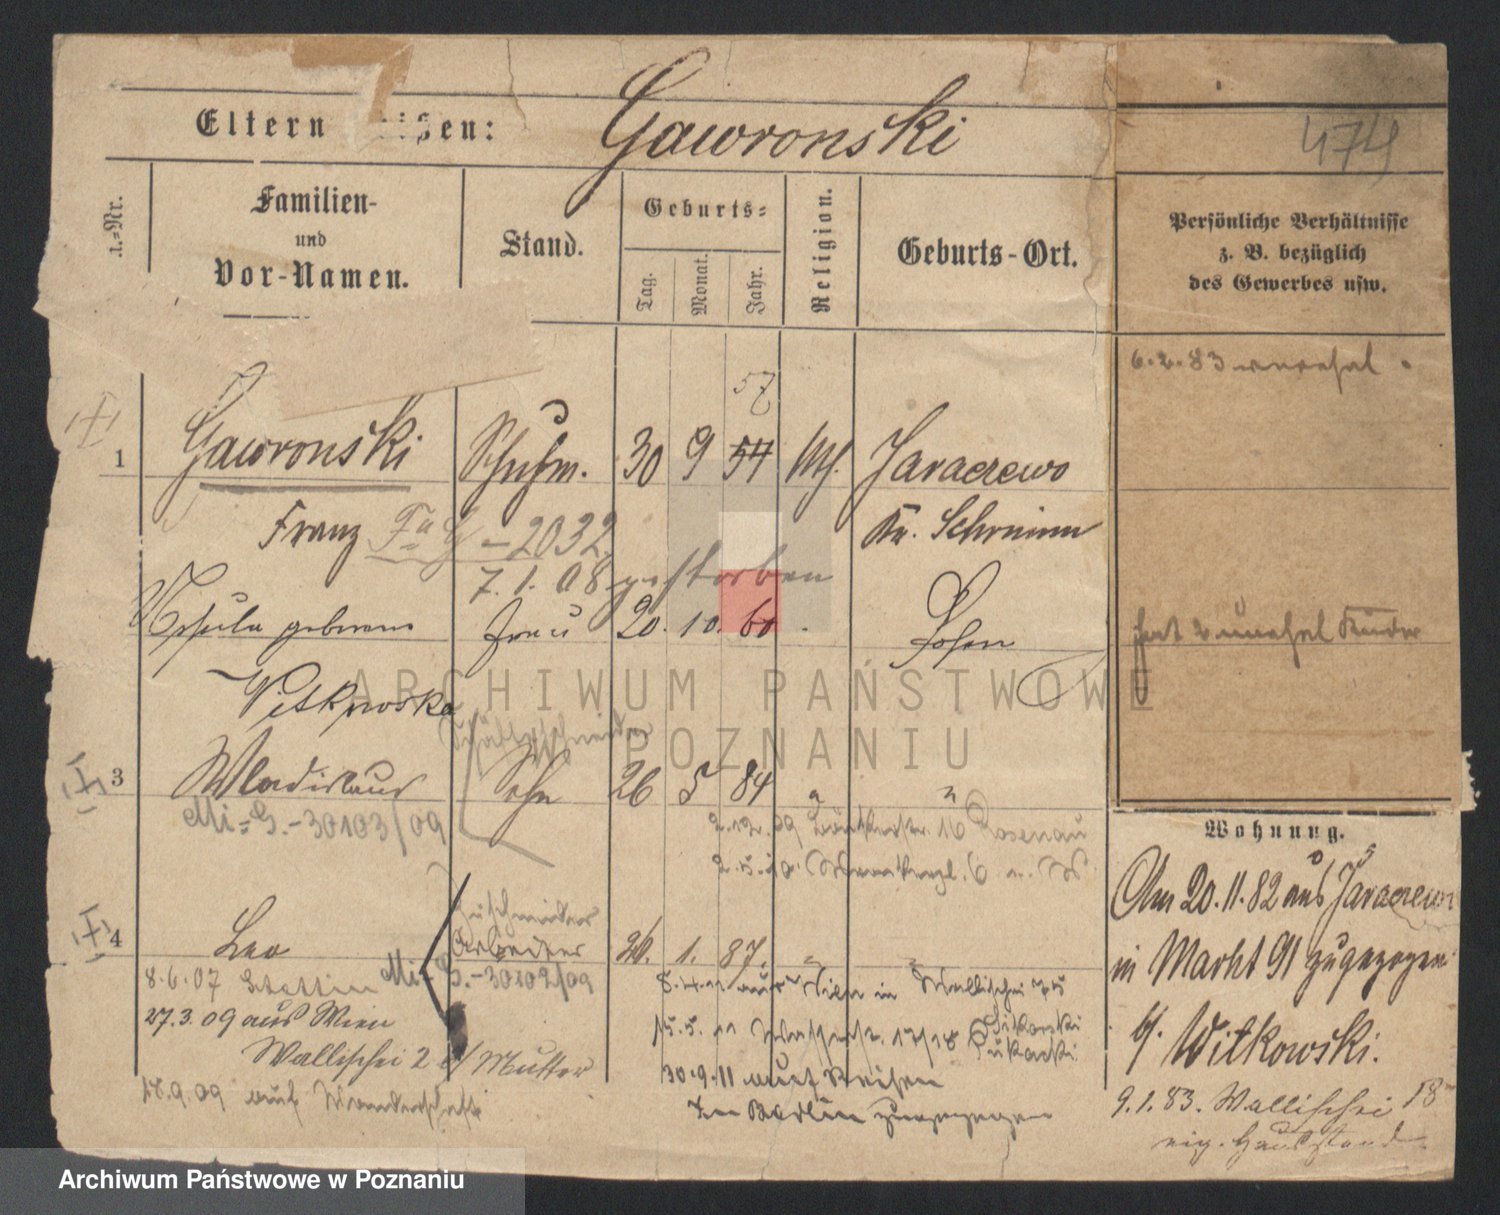 474
Eltern ißen: Gawronski
.-Nr.
Familien-
und
Vor-Namen.
Stand.
Geburts-
Tag.
Monat.
Jahr.
Religion.
Geburts-Ort.
Persönliche Verhältnisse
z. B. bezüglich
des Gewerbes usw.
6.2.83
57
1 Gawronski Schuhm. 30 9 54 kath. Jaraczewo
Franz Fa G - 2032 Kr. Schrimm
7.1.08 gestorben
Ursula geborene Frau 20. 10. 60 Posen
hat 2 unehel Kinder
Witkowska
3 Wladislaus Sohn 26 5 84 " "
Mi=G.-30103/09
2.12.09 16 Rosenau
2.5.10 6
Wohnung.
Am 20.11.82 aus Jaraczewo
4 Leo Arbeiter 26. 1. 87. " "
8.6.07 Stettin Mi=G.-30102/09
8.4.11 aus Wien in Wallischei 75
in Markt 91 zugezogen
27.3.09 aus Wien
15.5.11 17/18
b/ Witkowski.
Wallischei 2 b/ Mutter
30.9.11 auf Reisen
18.9.09 auf Wanderschaft
In Berlin zugezogen
9.1.83. Wallischei 18
eig. Hausstand
ARCHIWUM PAŃSTWOWE
W POZNANIU
Archiwum Państwowe w Poznaniu